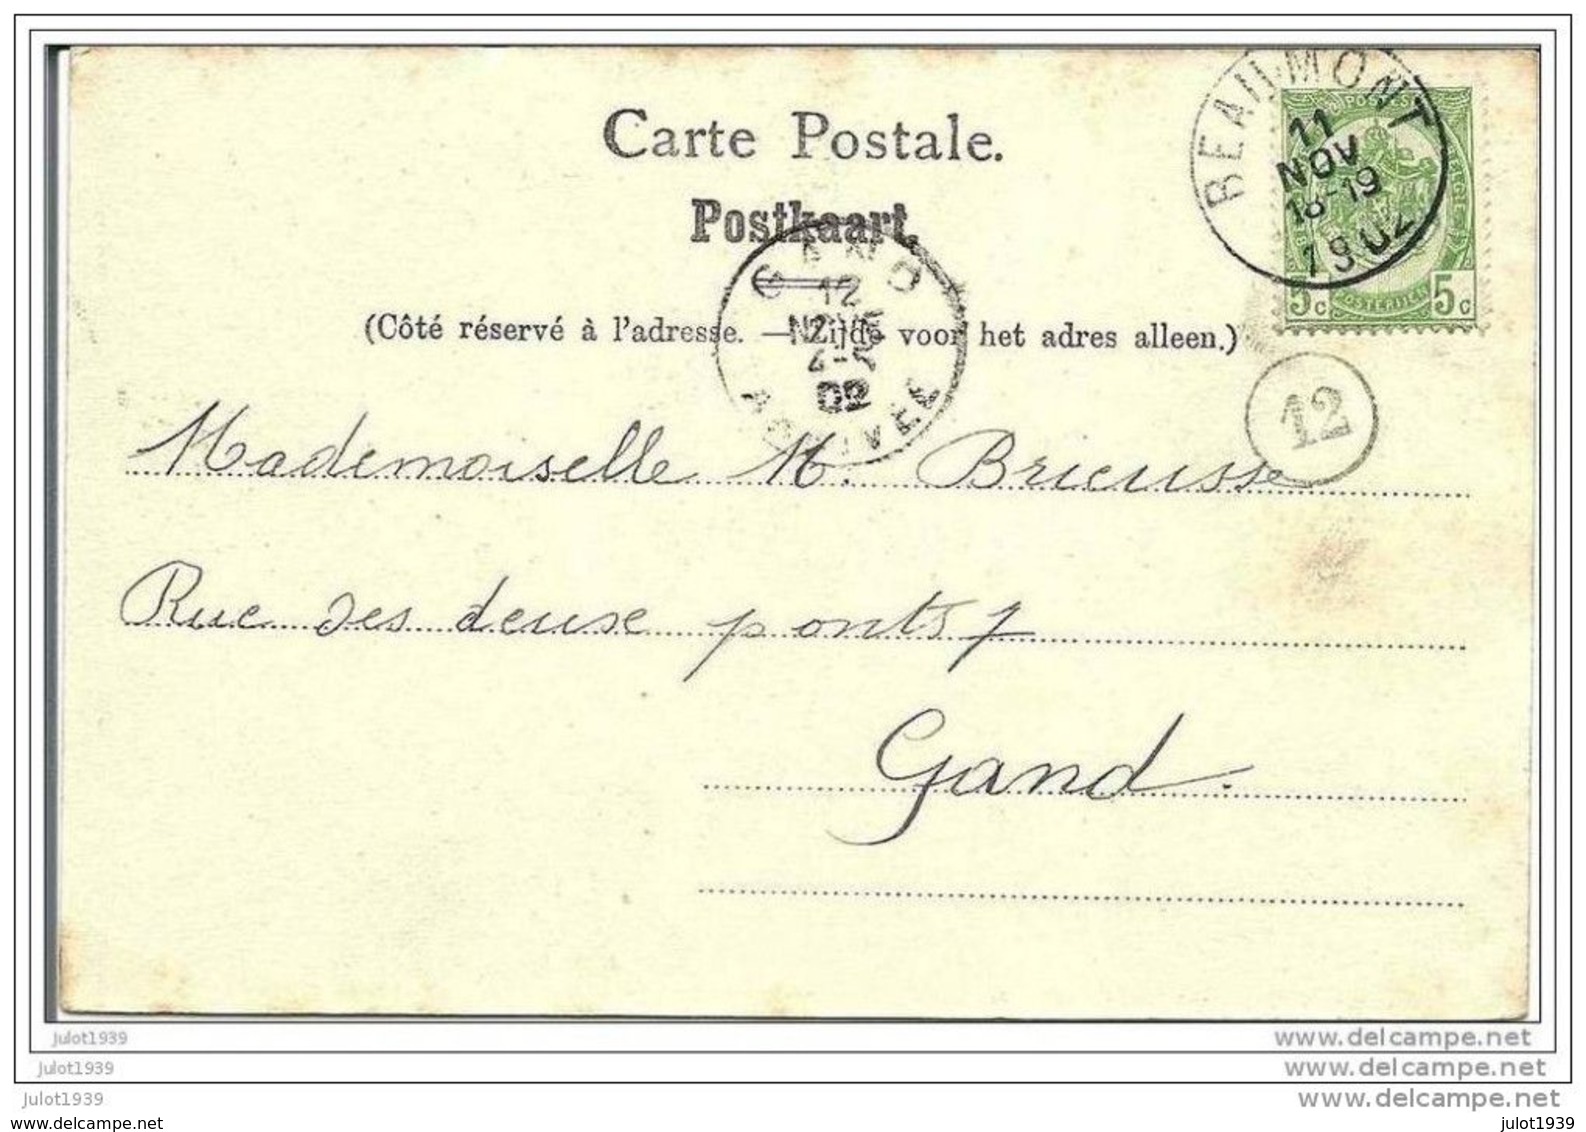 Carte Postale.
Postkaart.
(Côté réservé à l'adresse. — Zijde voor het adres alleen.)
BEAUMONT
11
NOV
18-19
1902
5c 5c
GAND
12
NOV
02
12
Mademoiselle M. Bricusse
Rue des deuse ponts 7
Gand.
julot1939
www.delcampe.net
julot1939
www.delcampe.net
julot1939
www.delcampe.net
julot1939
julot1939